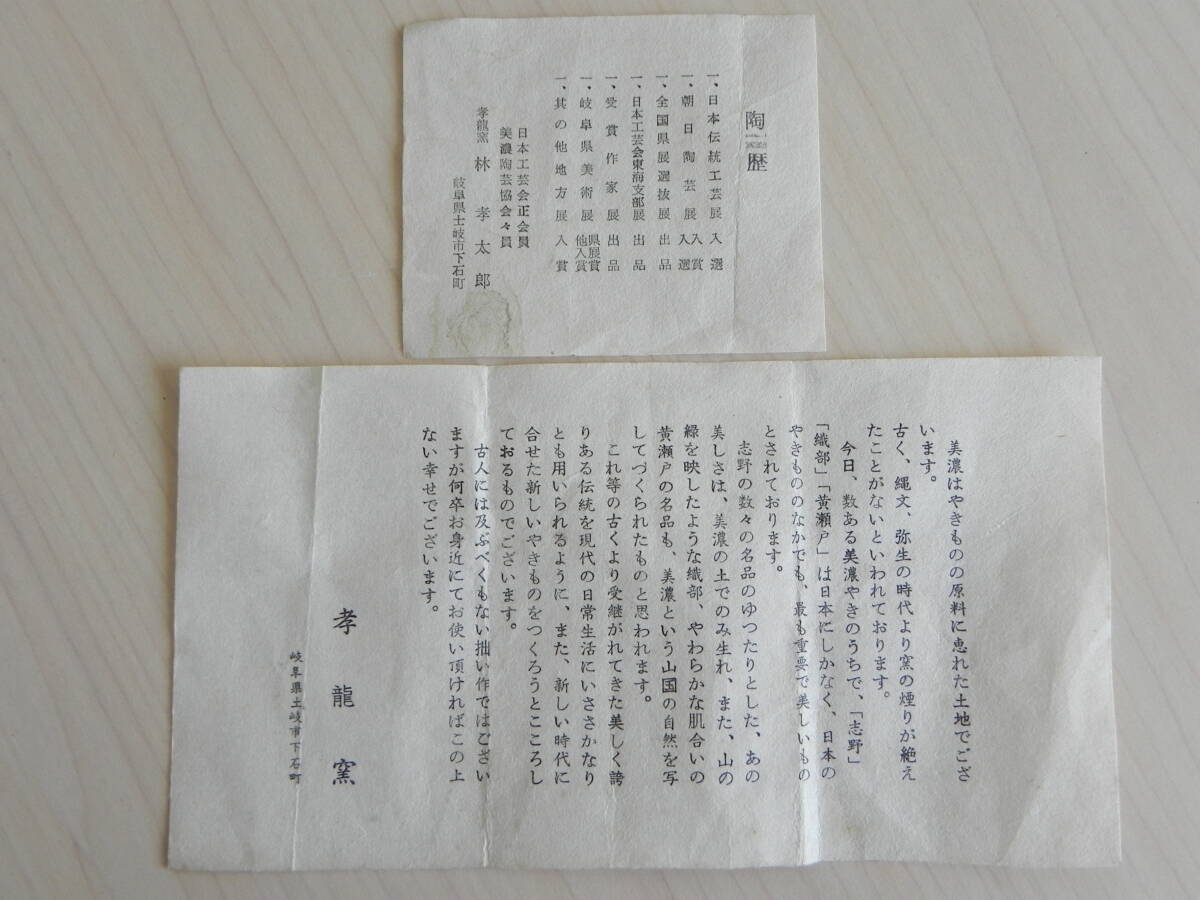 陶歴
一、日本伝統工芸展入選
一、朝日陶芸展入賞入選
一、全国県展選抜展出品
一、日本工芸会東海支部展出品
一、受賞作家展出品
一、岐阜県美術展県展賞他入賞
一、其の他地方展入賞
日本工芸会正会員
美濃陶芸協会々員
孝龍窯 林孝太郎
岐阜県土岐市下石町
美濃はやきものの原料に恵れた土地でござ
います。
古く、縄文、弥生の時代より窯の煙りが絶え
たことがないといわれております。
今日、数ある美濃やきのうちで、「志野」
「織部」「黄瀬戸」は日本にしかなく、日本の
やきもののなかでも、最も重要で美しいもの
とされております。
志野の数々の名品のゆつたりとした、あの
美しさは、美濃の土でのみ生れ、また、山の
緑を映したような織部、やわらかな肌合いの
黄瀬戸の名品も、美濃という山国の自然を写
してづくられたものと思われます。
これ等の古くより受継がれてきた美しく誇
りある伝統を現代の日常生活にいささかなり
とも用いられるように、また、新しい時代に
合せた新しいやきものをつくろうとこころし
ておるものでございます。
古人には及ぶべくもない拙い作ではござい
ますが何卒お身近にてお使い頂ければこの上
ない幸せでございます。
孝龍窯
岐阜県土岐市下石町